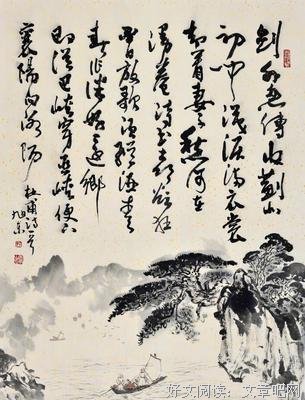 劍外忽傳收薊北
初聞涕淚滿衣裳
却看妻子愁何在
漫卷詩書喜欲狂
白日放歌須縱酒青
春作伴好還鄉
即從巴峽穿巫峽便下
襄陽向洛陽 杜甫詩一首
旭東
好文阅读：文章吧网